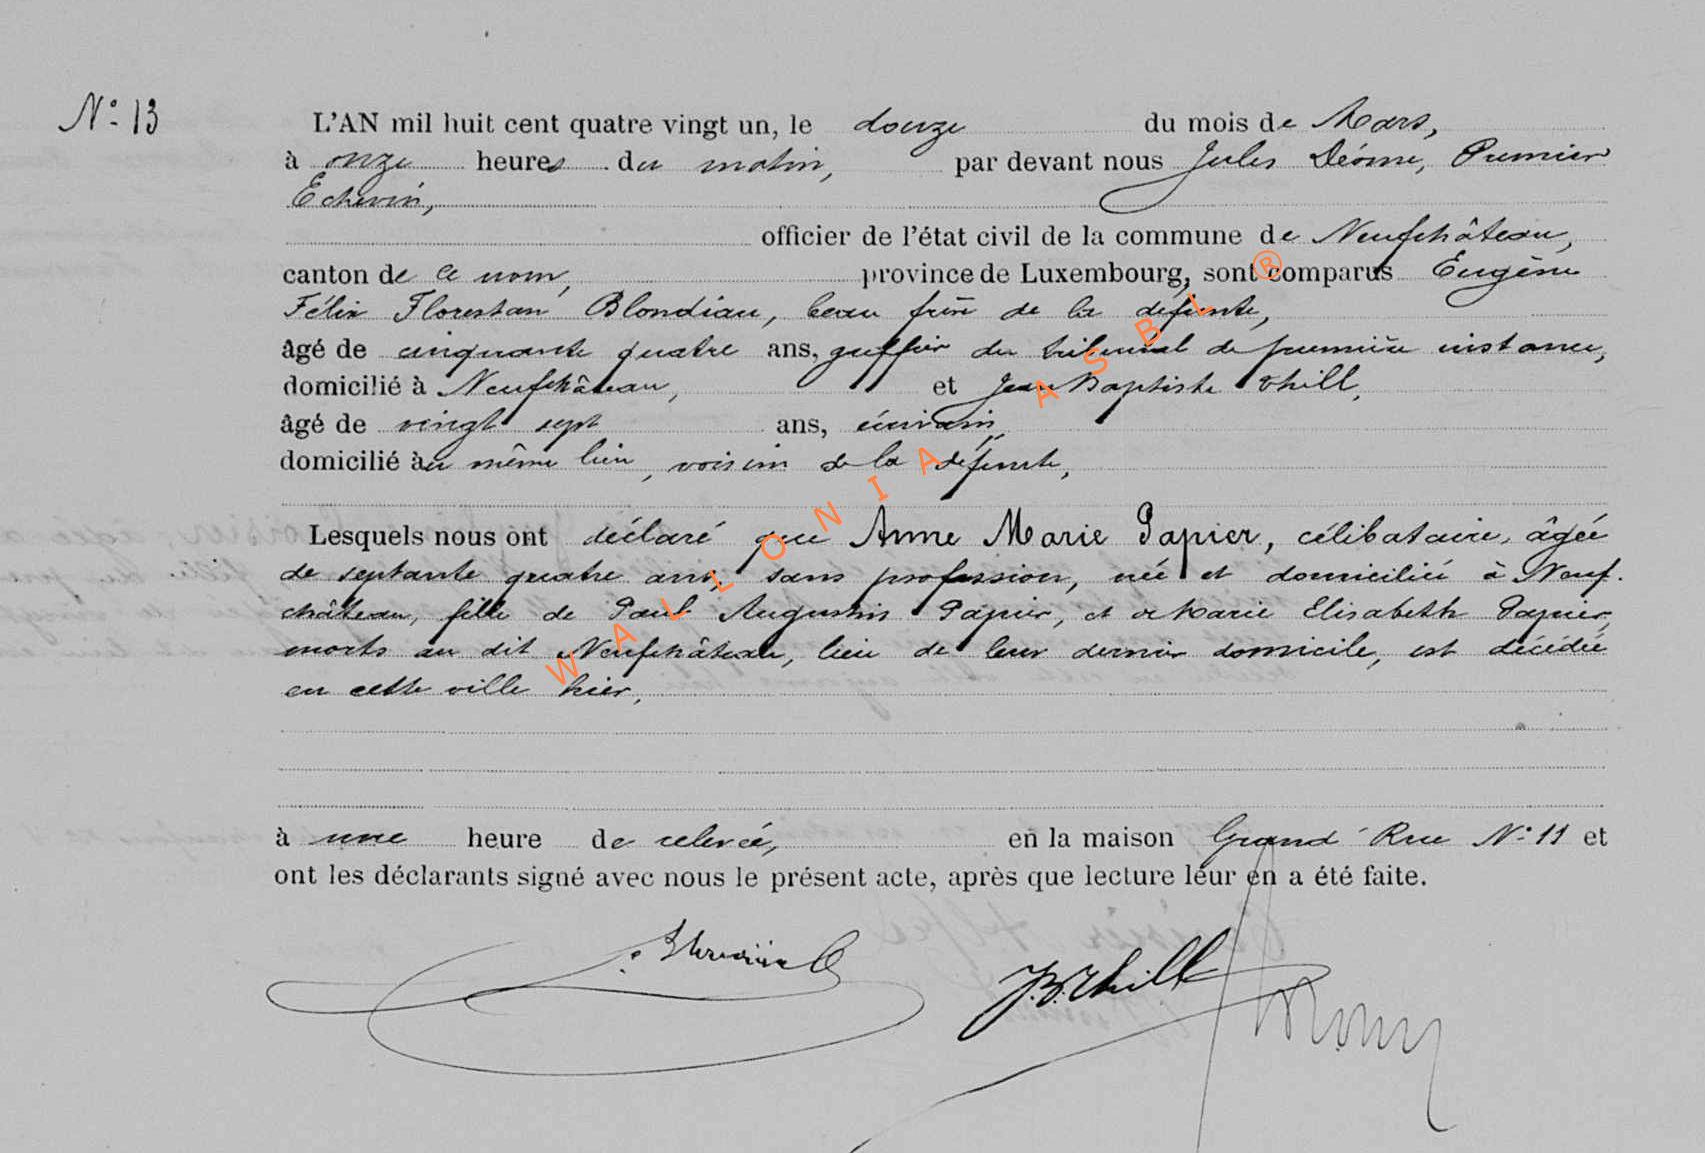 N° 13
L'AN mil huit cent quatre vingt un, le douze du mois de Mars,
à onze heures du matin, par devant nous Jules Déome, Premier
Echevin,
officier de l'état civil de la commune de Neufchâteau,
canton de ce nom, province de Luxembourg, sont comparus Eugène
Félix Florestan Blondiau, beau frère de la défunte,
âgé de cinquante quatre ans, greffier du tribunal de première instance,
domicilié à Neufchâteau, et Jean Baptiste Thill,
âgé de vingt sept ans, écrivain,
domicilié au même lieu, voisin de la défunte,
Lesquels nous ont déclaré que Anne Marie Papier, célibataire, âgée
de septante quatre ans, sans profession, née et domiciliée à Neuf-
château, fille de Paul Augustin Papier, et de Marie Elisabeth Papier,
morts au dit Neufchâteau, lieu de leur dernier domicile, est décédée
en cette ville hier,
à une heure de relevée, en la maison Grand' Rue N° 11 et
ont les déclarants signé avec nous le présent acte, après que lecture leur en a été faite.
J.B. Thill
WALLONIA ASBL ®